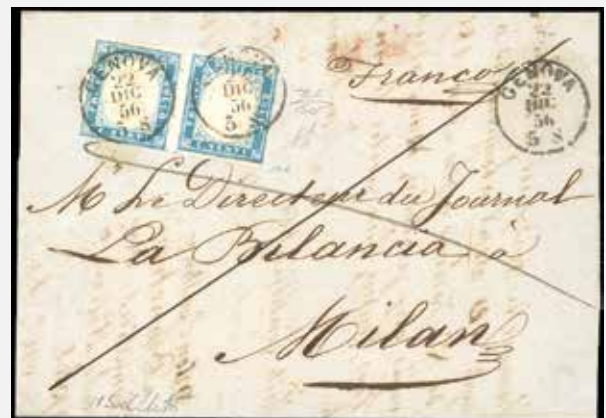 GENOVA
22
DIC
56
5 S
22
DIC
56
5
Franco
GENOVA
22
DIC
56
5 S
Mr Le Directeur du Journal
La Bilancia à
Milan